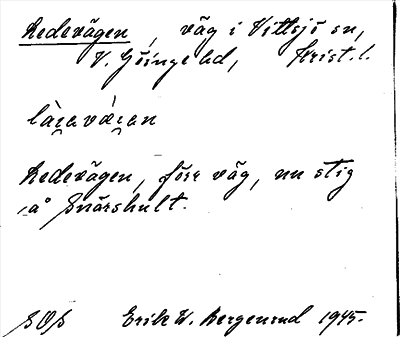 Ledevägen, väg i Vittsjö sn,
V. Göinge hd, Krist. l.
Ledevägen, förr väg, nu stig
på Snärshult.
SOS Erik W. Bergenrud 1945.